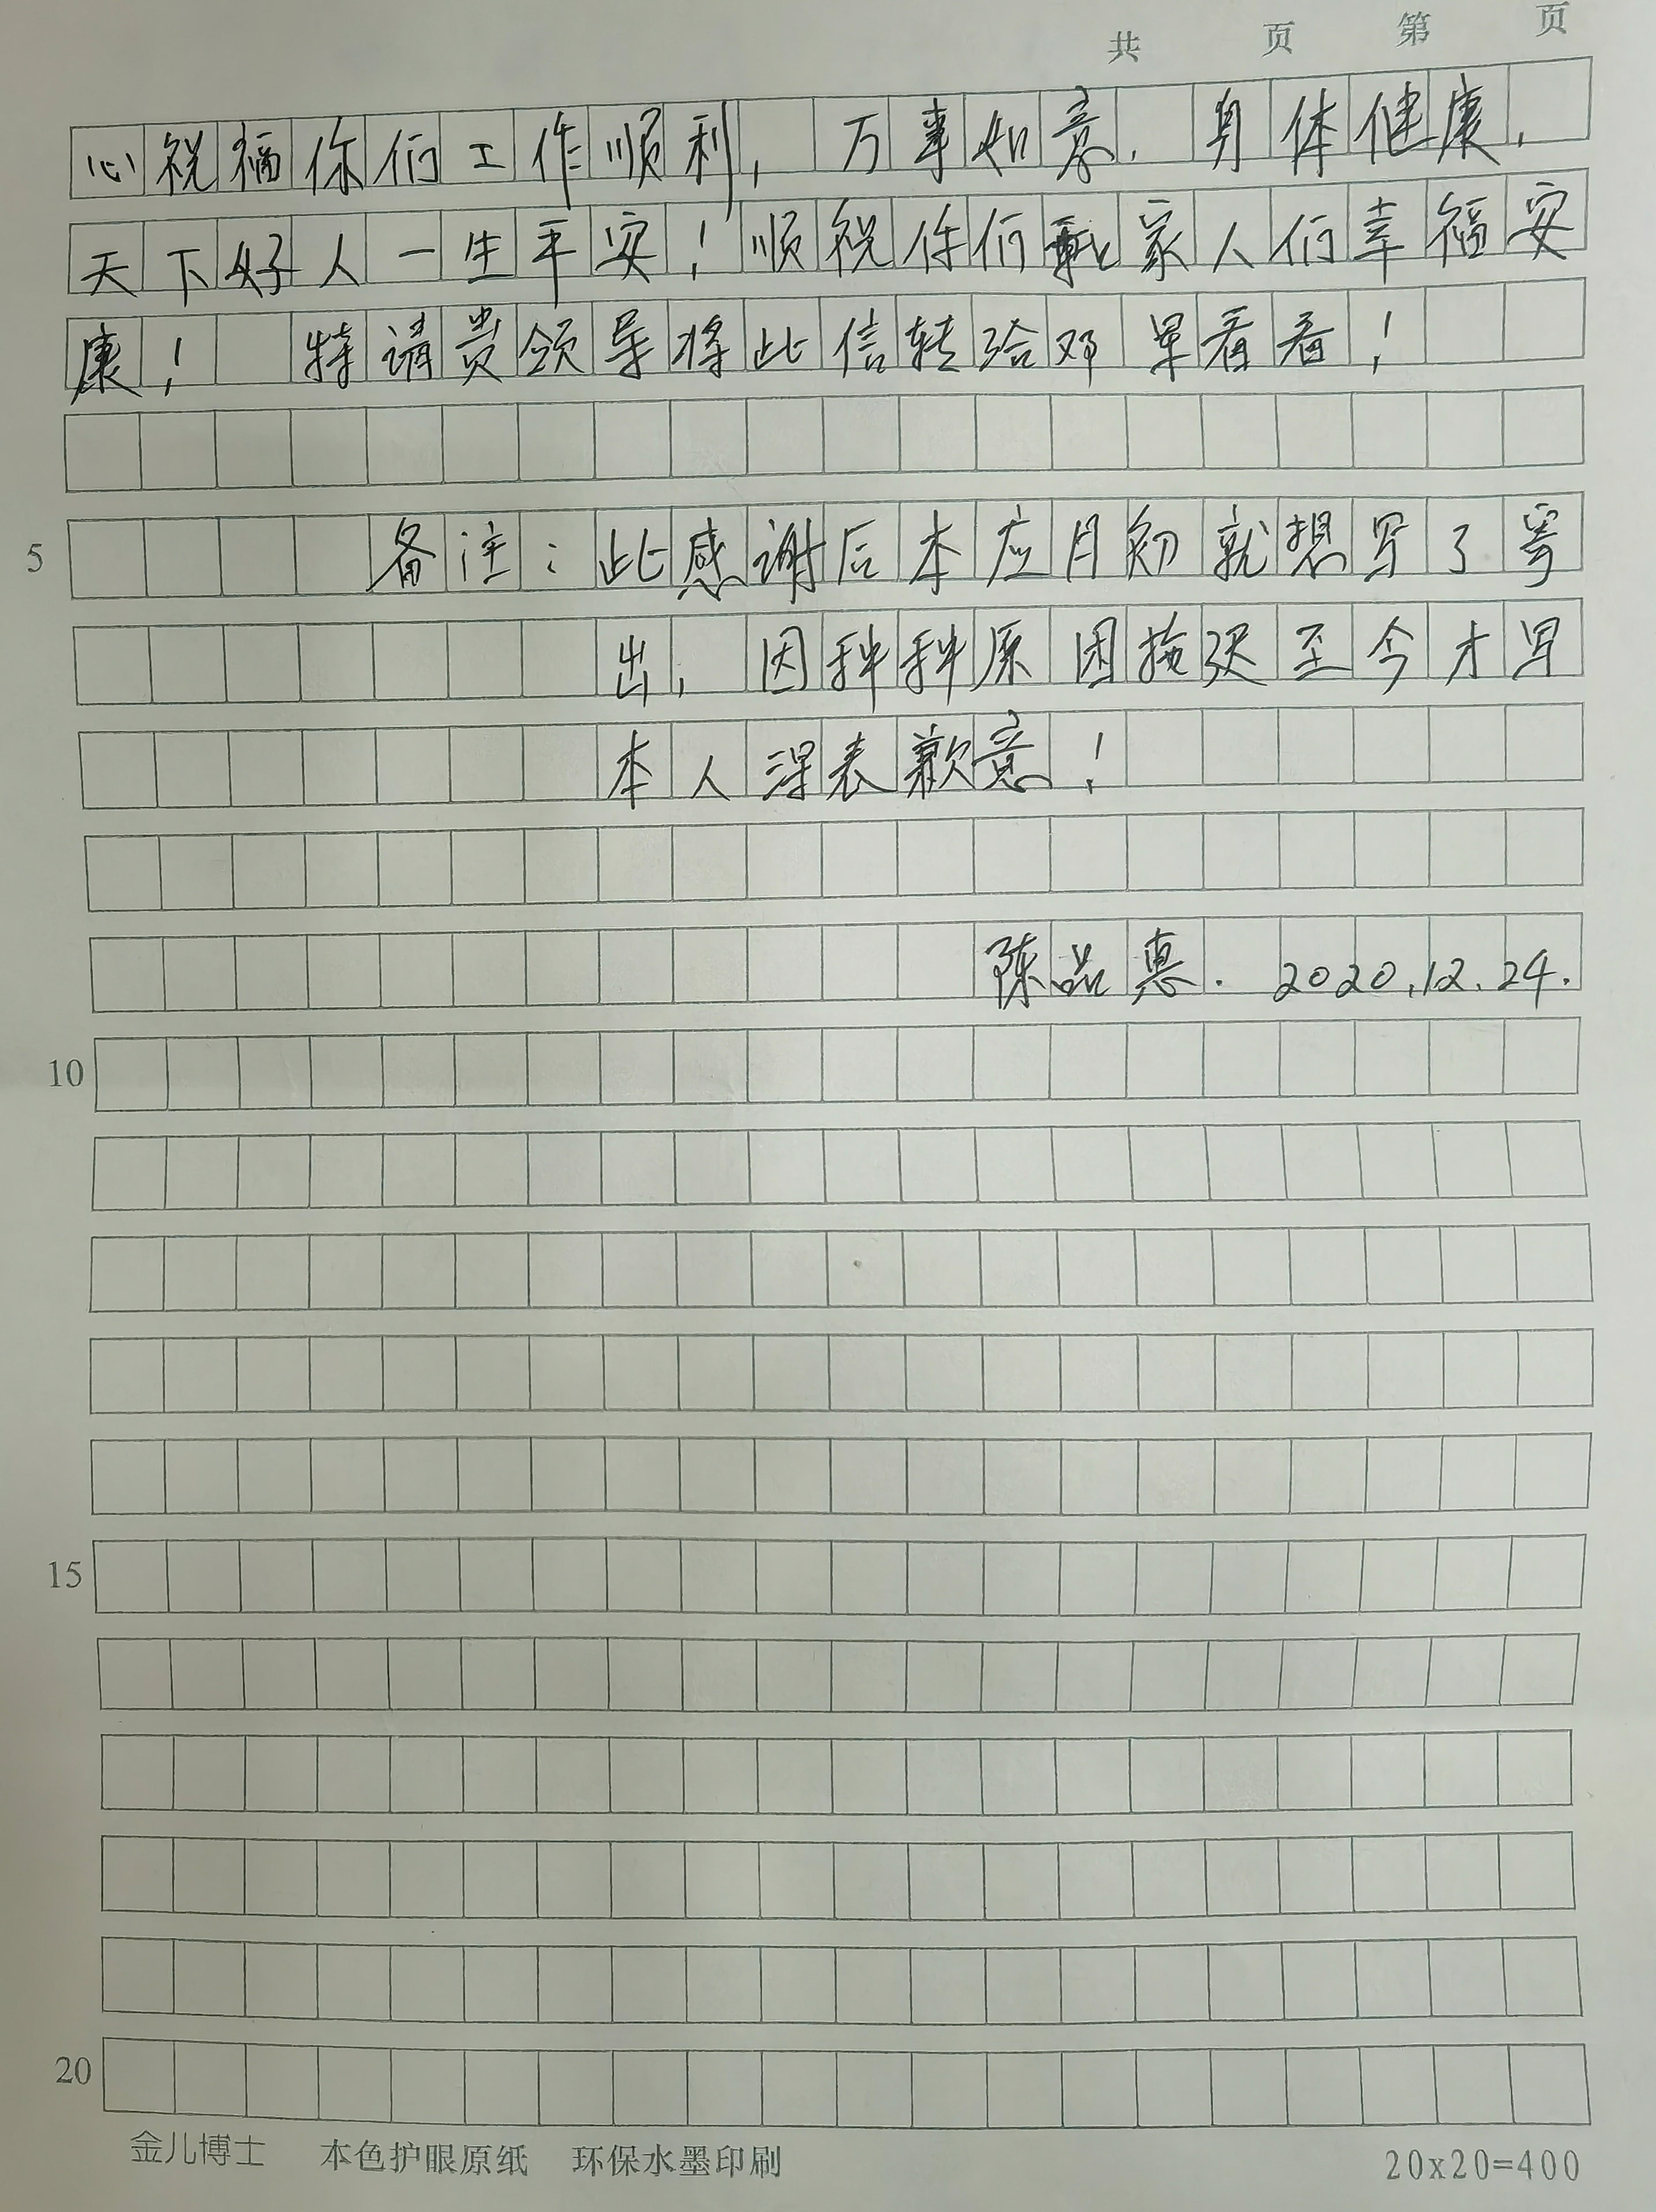 共 页 第 页
心祝福你们工作顺利，万事如意．身体健康，
天下好人一生平安！顺祝你们家人们幸福安
康！ 特请贵领导将此信转给邓早看看！
5 备注：此感谢后本应月初就想写了寄
出，因种种原因拖迟至今才写
本人深表歉意！
陈品惠．2020.12.24.
10
15
20
金儿博士 本色护眼原纸 环保水墨印刷 20x20=400